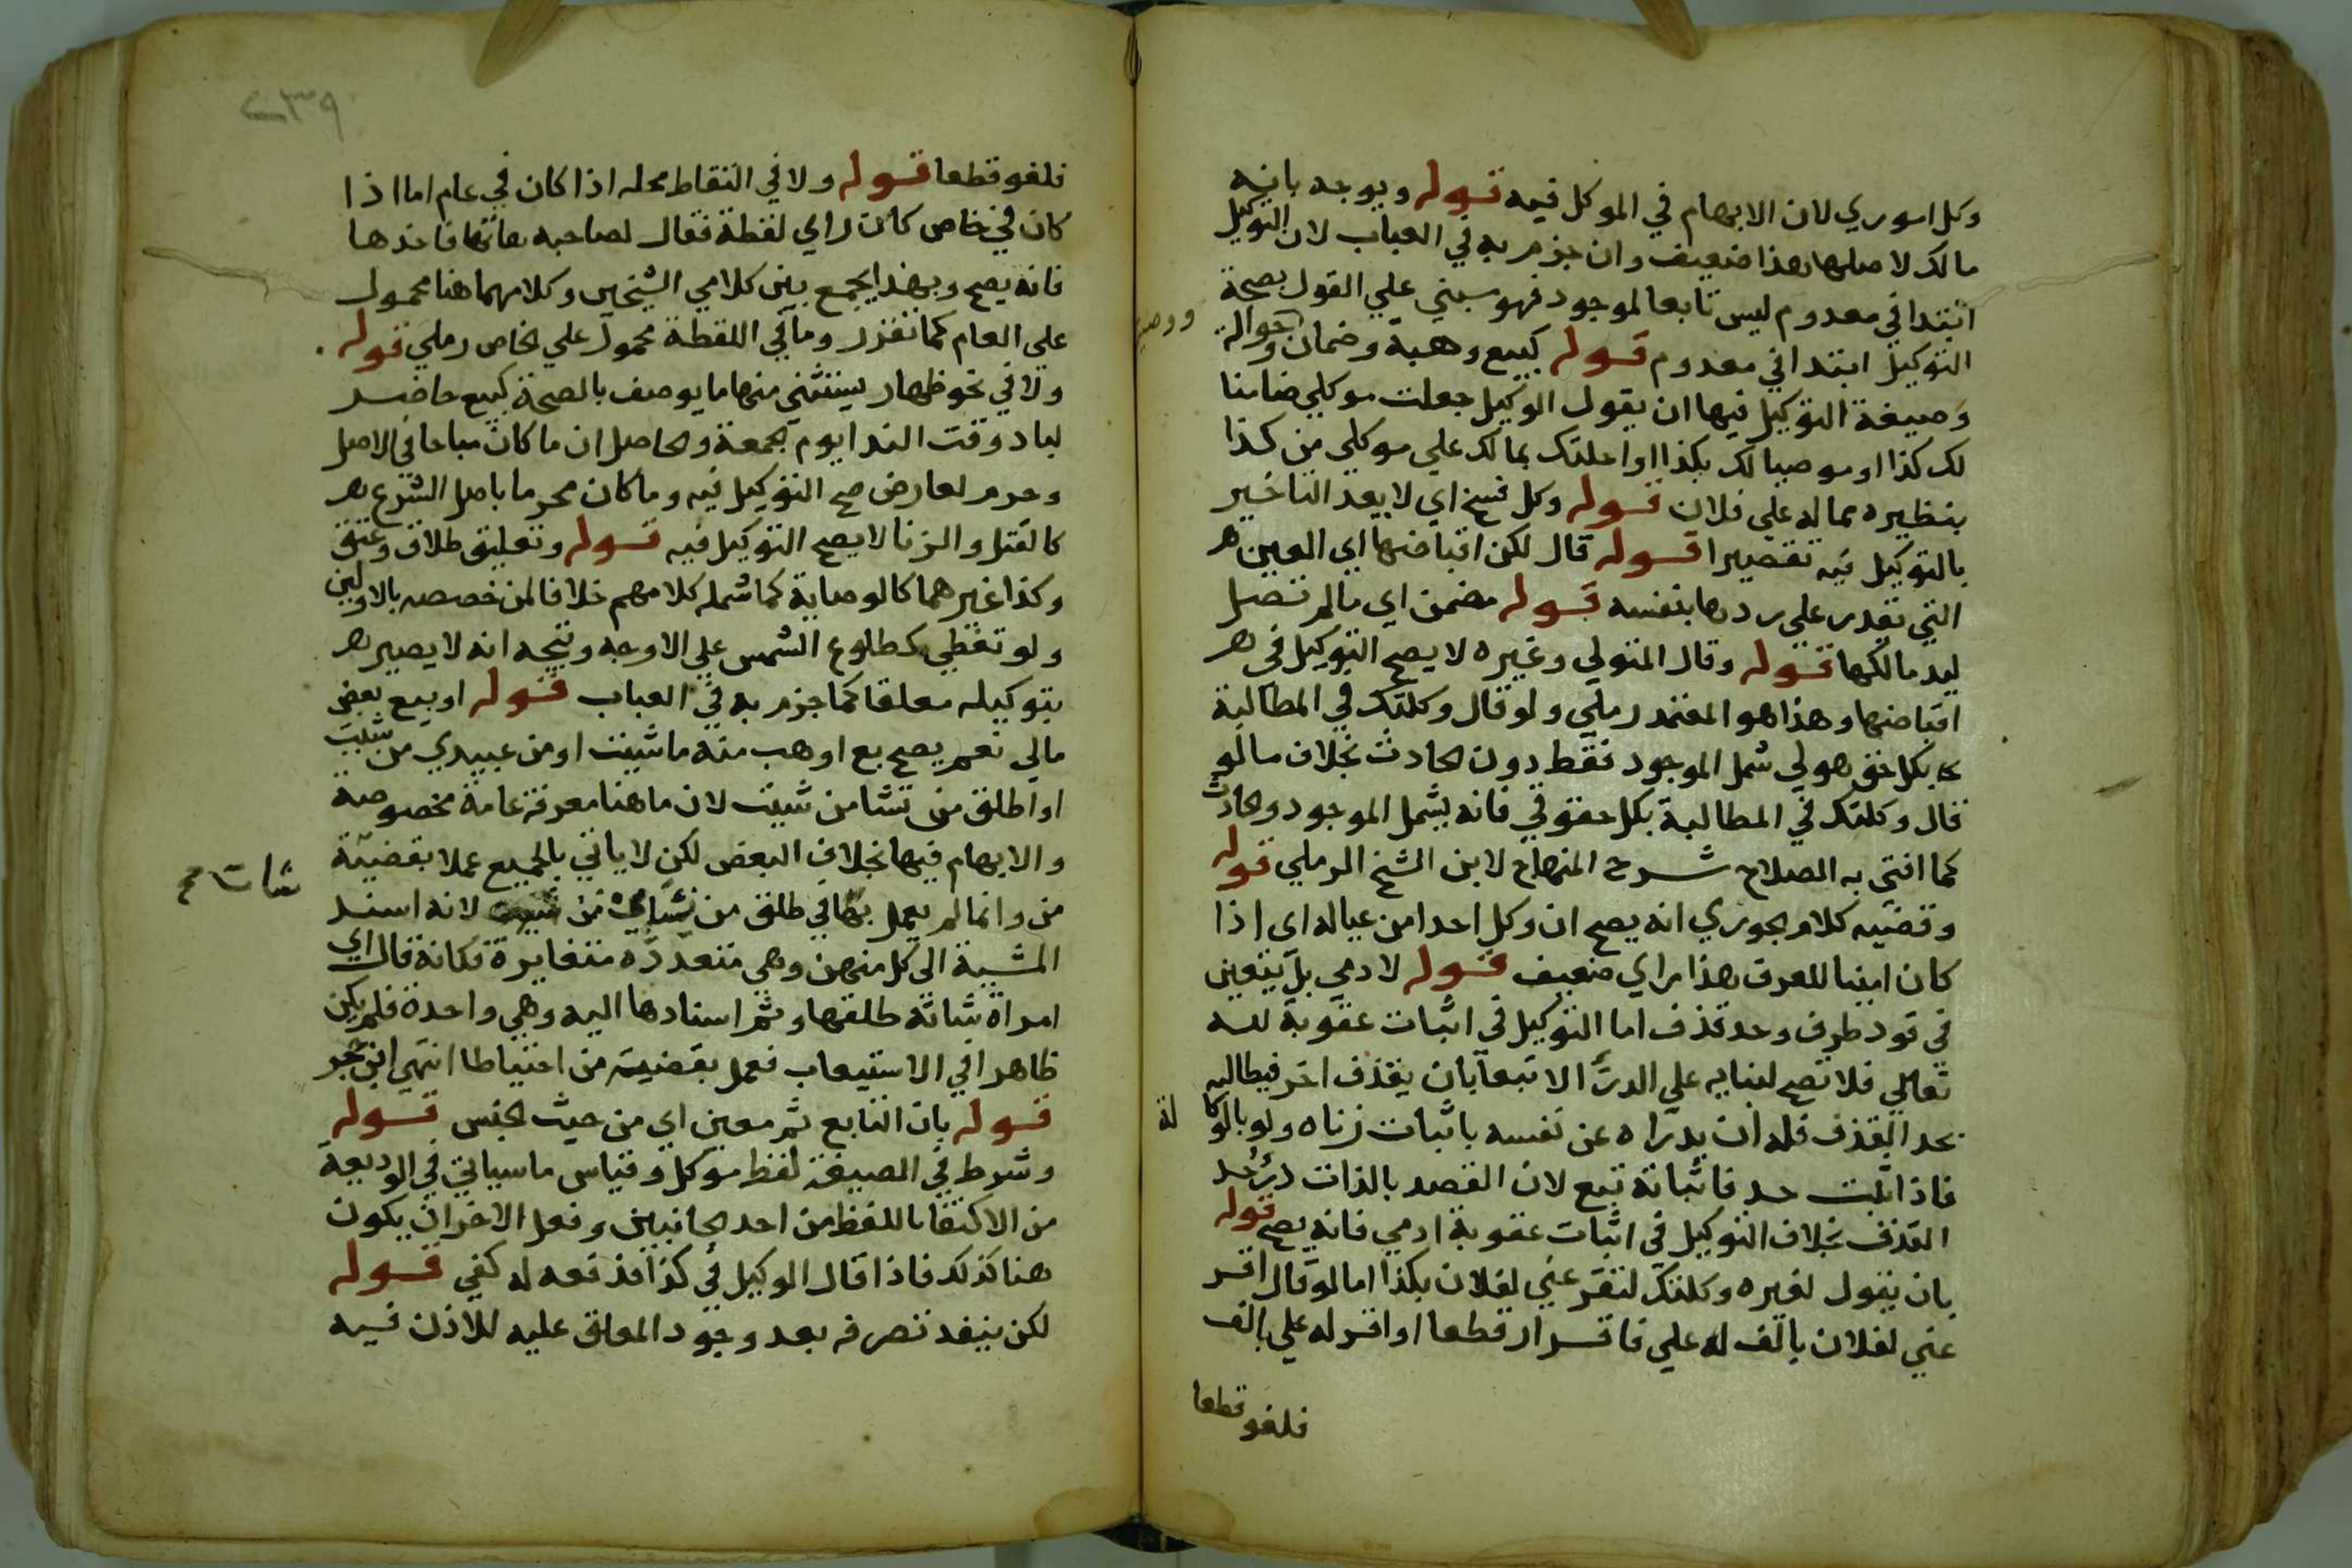 وكل اموري لان الابهام في الموكل فيه قوله ويوجه بانه
مالك لاصلها هذا ضعيف وان جزم به في العباب لان التوكيل
ابتدا في معدوم ليس تابعا لموجود فهو مبني علي القول بصحة
التوكيل ابتدا في معدوم قوله كبيع وهبة وضمان وحوالة
ووصية
وصيغة التوكيل فيها ان يقول الوكيل جعلت موكلي ضامنا
لك كذا او موصيا لك بكذا او احلتك بمالك علي موكلي من كذا
بنظيره مماله علي فلان قوله وكل فسخ اي لا يعد التاخير
بالتوكيل فيه تقصيرا قوله قال لكن اقباضها اي العين
التي تقدر علي ردها بنفسه قوله مضمن اي مالم تصل
ليد مالكها قوله وقال المتولي وغيره لا يصح التوكيل في
اقباضها وهذا هو المعتمد رملي ولو قال وكلتك في المطالبة
بكل حق هو لي شمل الموجود فقط دون الحادث بخلاف ما لو
قال وكلتك في المطالبة بكل حقوقي فانه يشمل الموجود والحادث
كما افتي به الصلاح شرح المنهاج لابن الشيخ الرملي قوله
وقضيه كلام الجوري انه يصح ان وكل احدا من عياله اي اذا
كان امينا للعرف هذا راي ضعيف قوله لادمي بل يتعين
في قود طرف وحد قذف اما التوكيل في اثبات عقوبة لله
تعالي فلا تصح لبنايه علي الدرء الا تبعا بان يقذف اخر فيطالبه
بحد القذف فله ان يدراه عن نفسه باثبات زناه ولو بالوكا
لة
فاذا اثبت حد فاثباته تبع لان القصد بالذات درء حد
القذف بخلاف التوكيل في اثبات عقوبة ادمي فانه يصح قوله
بان يقول لغيره وكلتك لتقر عني لفلان بكذا اما لو قال اقر
عني لفلان بالف له علي فاقرار قطعا او اقر له علي بالف
فلغو قطعا
٢٣٩
فلغو قطعا قوله ولا في التقاط محله اذا كان في عام اما اذا
كان في خاص كان راي لقطة فقال لصاحبه هاتها فاخذها
فانه يصح وبهذا يجمع بين كلامي الشيخين وكلامهما هنا محمول
علي العام كما تقرر وما في اللقطة محمول علي الخاص رملي قوله
ولا في نحو ظهار يستثني منها ما يوصف بالصحة كبيع حاضر
لباد وقت الندا يوم الجمعة والحاصل ان ما كان مباحا في الاصل
وحرم لعارض صح التوكيل فيه وما كان محرما باصل الشرع
كالقتل والزنا لا يصح التوكيل فيه قوله وتعليق طلاق وعتق
وكذا غيرهما كالوصاية كما شمله كلامهم خلافا لمن خصصه بالاولين
ولو تقطي كطلوع الشمس علي الاوجه ويتجه انه لا يصير
بتوكيله معلقا كما جزم به في العباب قوله او بيع بعض
مالي نعم يصح بع او هب منه ما شيت او من عبيدي من شيت
او اطلق من تشا من شيت لان ما هنا معرفة عامة مخصوصة
والابهام فيها بخلاف البعض لكن لا ياتي بالجميع عملا بقضية
من وانما لم يعمل بها في طلق من نسائي من لانه اسند
شات صح
المشية الي كل منهن وهي متعددة متغايرة فكانه قال اي
امراة شاته طلقها وثم اسنادها اليه وهي واحدة فلم يكن
ظاهرا في الاستيعاب فعمل بقضية من احتياطا انتهي ابن حجر
قوله بان التابع ثم معين اي من حيث الجنس قوله
وشرط في الصيغة لفظ موكل وقياس ما سياتي في الوديعة
من الاكتفا باللفظ من احد الجانبين وفعل الاخر ان يكون
هنا كذلك فاذا قال الوكيل في كذا فدفعه له كفي قوله
لكن ينفذ تصرفه بعد وجود المعلق عليه للاذن فيه